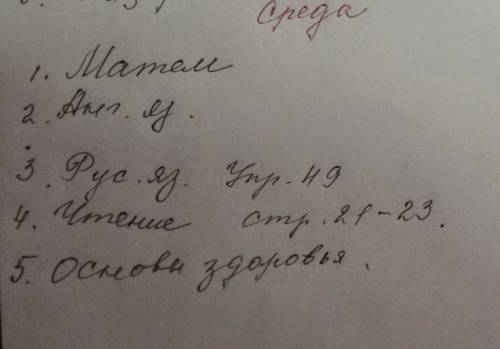 Среда
1. Матем
2. Анг. яз.
3. Рус. яз. Упр. 49
4. Чтение стр. 21-23.
5. Основы здоровья.